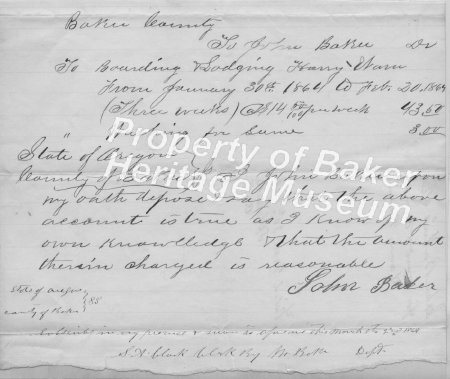 Baker County
To John Baker Dr
To Boarding & Lodging Harry Warn
From January 30th 1864 to Feb. 20. 1864
(Three weeks) @ $14 50/100 per week 43.50
for Same 3.00
Property of Baker
Heritage Museum
State of Oregon
County of I John Baker upon
my oath depose say that the above
account is true as I know of my
own Knowlledge & that the amount
therein charged is reasonable
John Baker
State of Oregon
County of Baker } SS
Subscribed in my presence & sworn to before me this March
S. A. Clark Clerk By Dept.